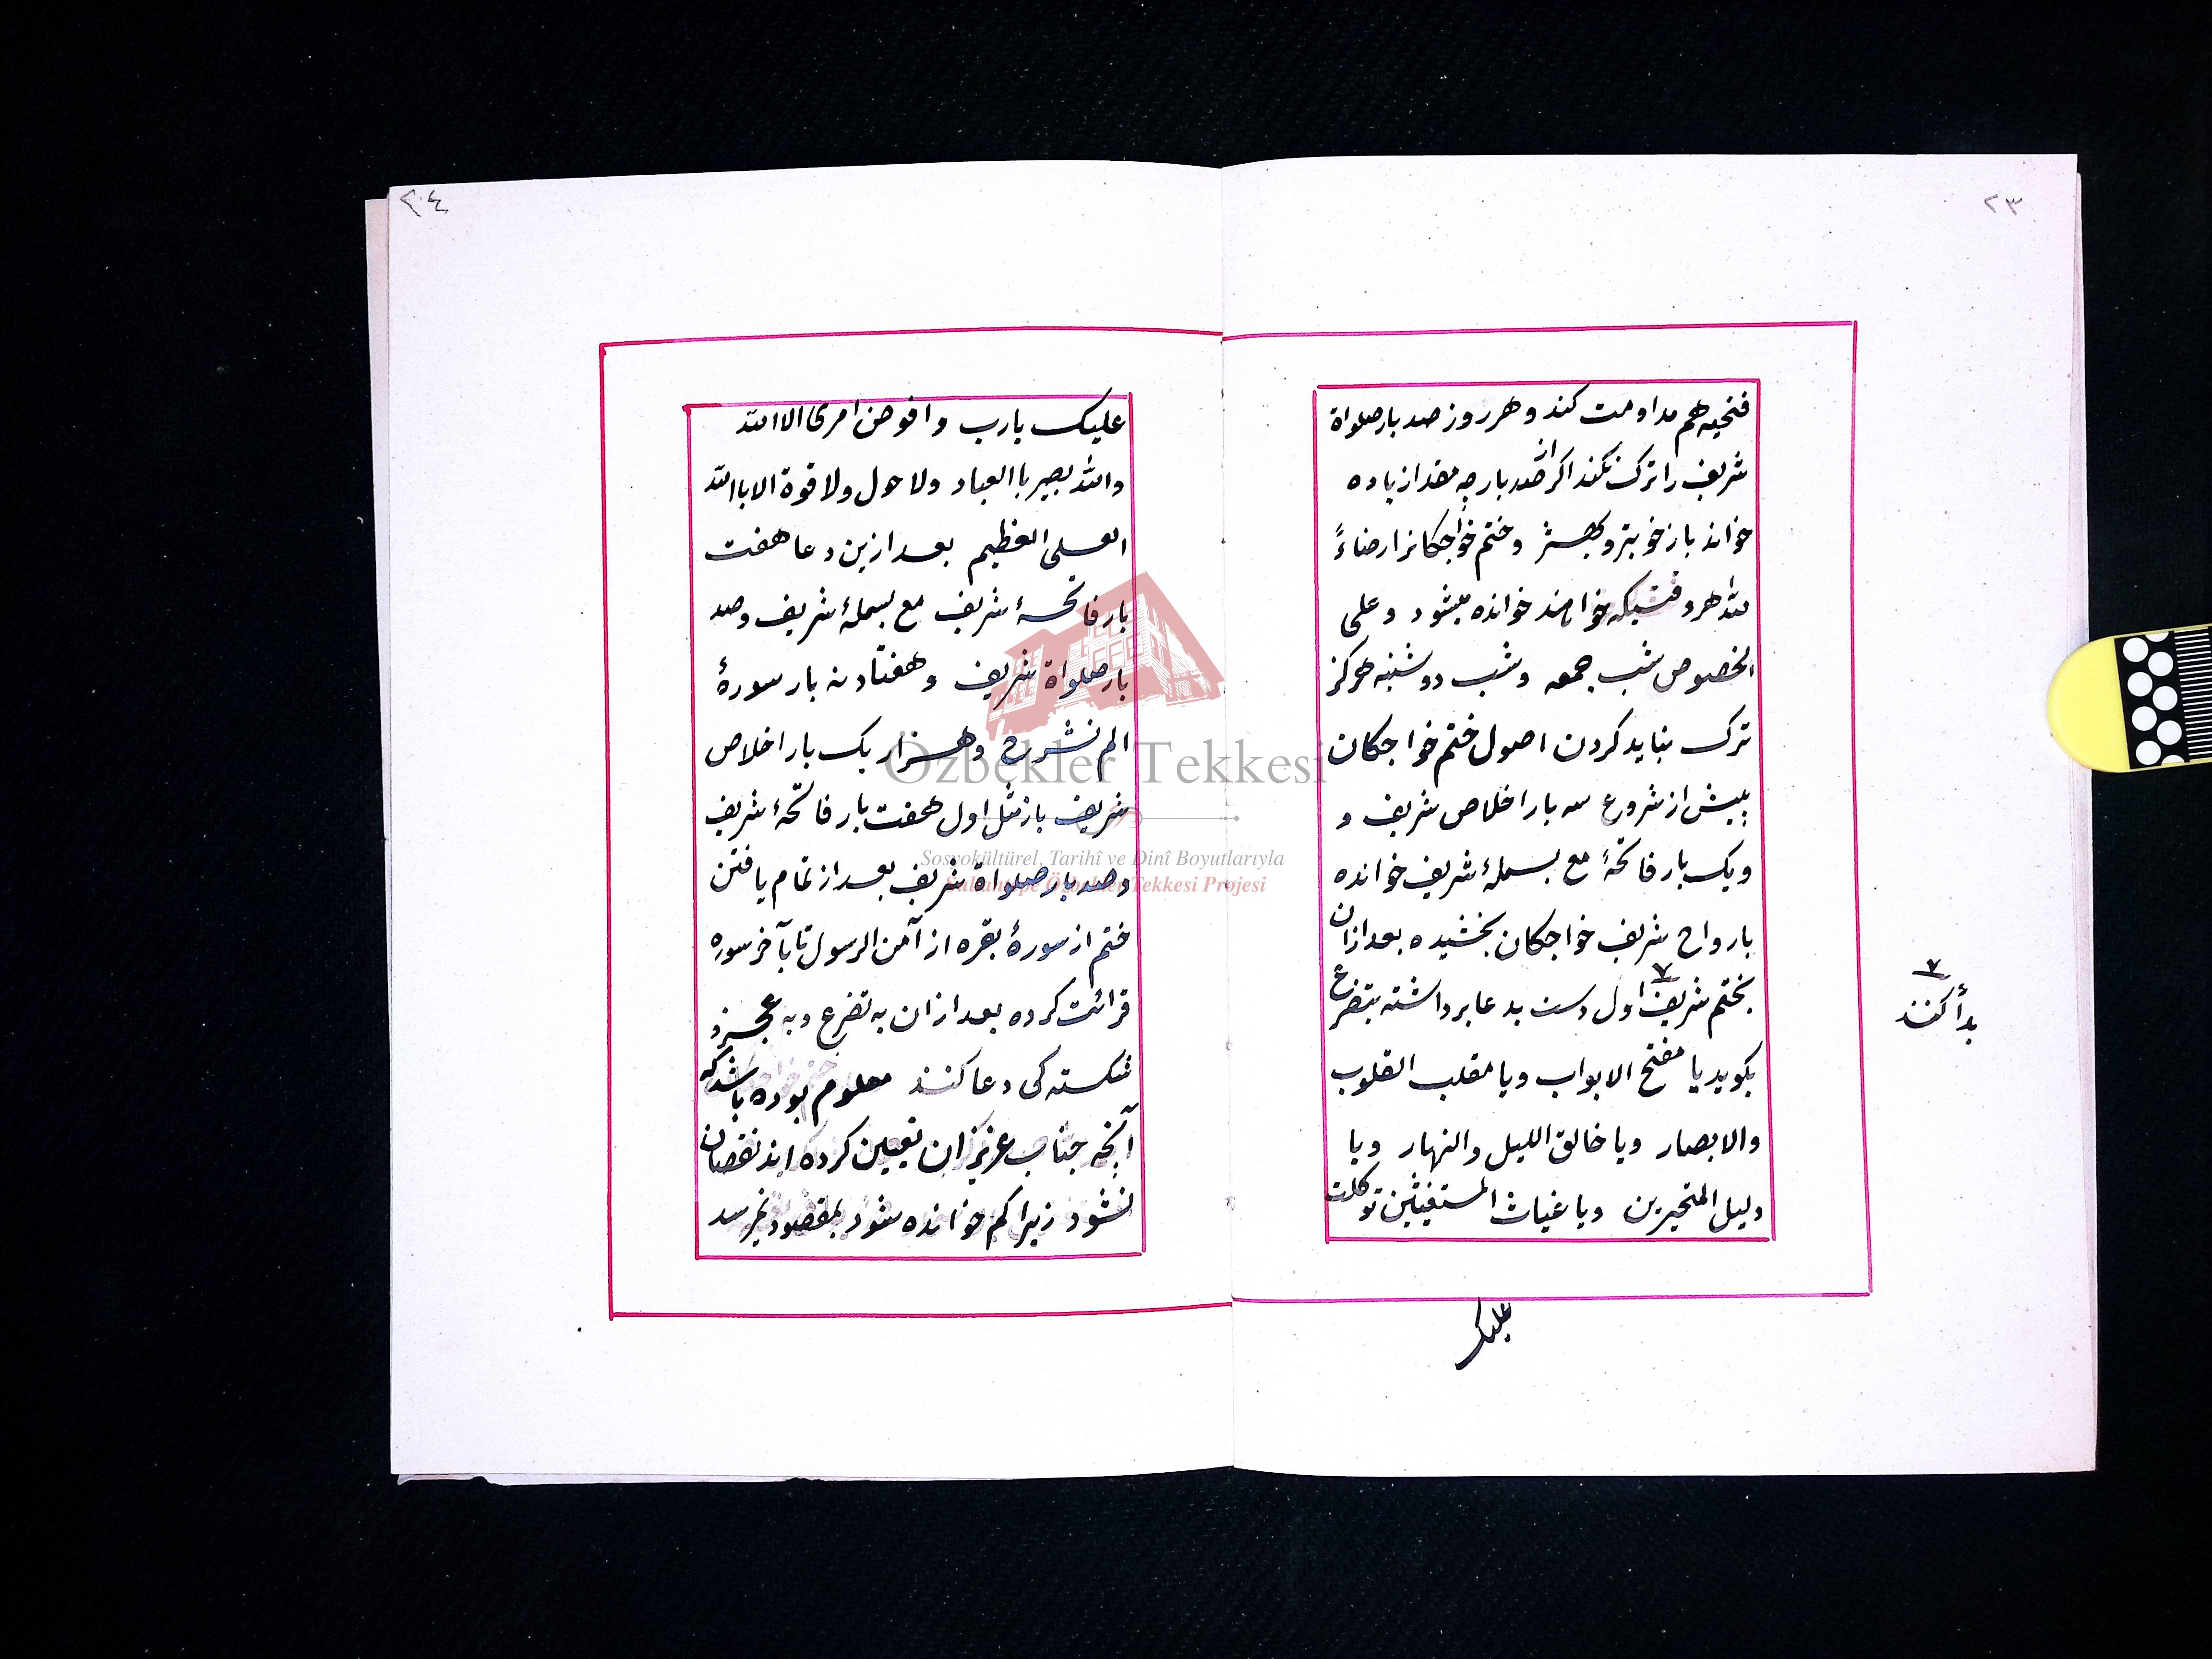 ٢٣
فتحیه هم مداومت کند و هر روز صد بار صلواة
شریف را ترک نکند اکر از صد بار چه مقدار زیاده
خواند باز خوبتر و بهتر و ختم خواجکانرا رضاءً
لله هر وقتیکه خواهند خوانده میشود وعلی
الخصوص شب جمعه و شب دوشنبه هرکز
ترک نباید کردن اصول ختم خواجکان
پیش از شروع سه بار اخلاص شریف و
ویک بار فاتحهٔ مع بسملهٔ شریف خوانده
بارواح شریف خواجکان بخشیده بعد ازان
بختم شریف ٧ اول دست بدعا برداشته بتضرع
بکوید یا مفتح الابواب ویا مقلب القلوب
والابصار ویا خالق اللیل والنهار ویا
دلیل المتحیرین ویا غیاث المستغیثین توکلت
٧
بدأ کنند
علیک
٢٤
علیک یارب وافوض امری الا الله
والله بصیر باالعباد ولا حول ولا قوة الا باالله
العلی العظیم بعد ازین دعا هفت
بار فاتحهٔ شریف مع بسملهٔ شریف وصد
بار صلواة شریف و هفتاد نه بار سورهٔ
الم نشرح و هزار یک بار اخلاص
شریف باز مثل اول هفت بار فاتحهٔ شریف
وصد بار صلواة شریف بعد از تمام یافتن
ختم از سورهٔ بقره از آمن الرسول تا بآخر سوره
قرائت کرده بعد ازان به تضرع و به عجز و
شکسته کی دعا کنند معلوم بوده باشد که
آنچه جناب عزیزان تعیین کرده اند نقصان
نشود زیرا کم خوانده شود بمقصود نمیرسد
Özbekler Tekkesi
Sosyokültürel, Tarihî ve Dinî Boyutlarıyla
Sultantepe Özbekler Tekkesi Projesi